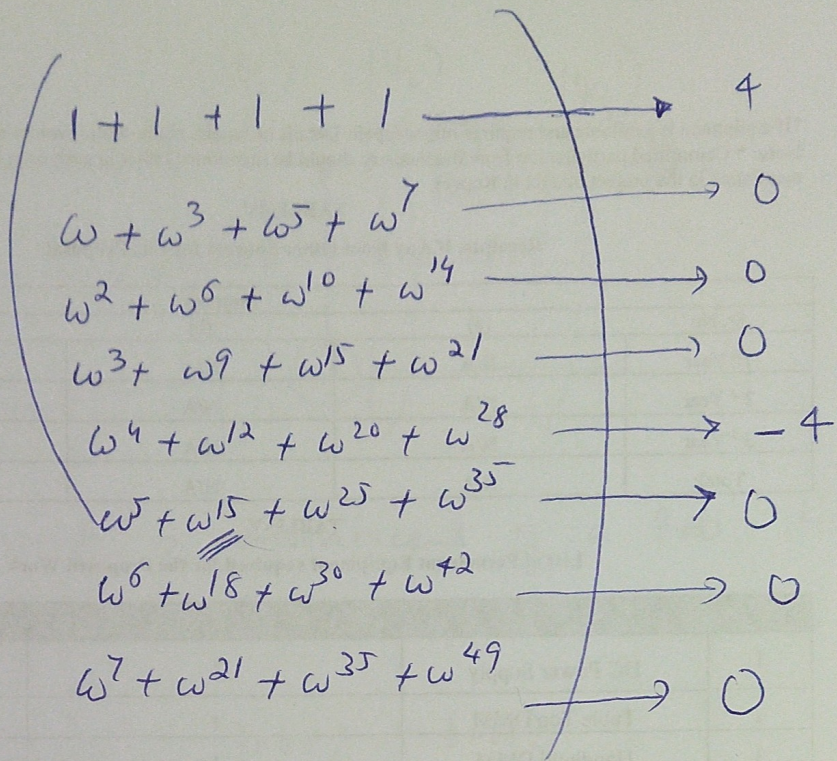 1 + 1 + 1 + 1 → 4
ω + ω³ + ω⁵ + ω⁷ → 0
ω² + ω⁶ + ω¹⁰ + ω¹⁴ → 0
ω³ + ω⁹ + ω¹⁵ + ω²¹ → 0
ω⁴ + ω¹² + ω²⁰ + ω²⁸ → -4
ω⁵ + ω¹⁵ + ω²⁵ + ω³⁵ → 0
ω⁶ + ω¹⁸ + ω³⁰ + ω⁴² → 0
ω⁷ + ω²¹ + ω³⁵ + ω⁴⁹ → 0